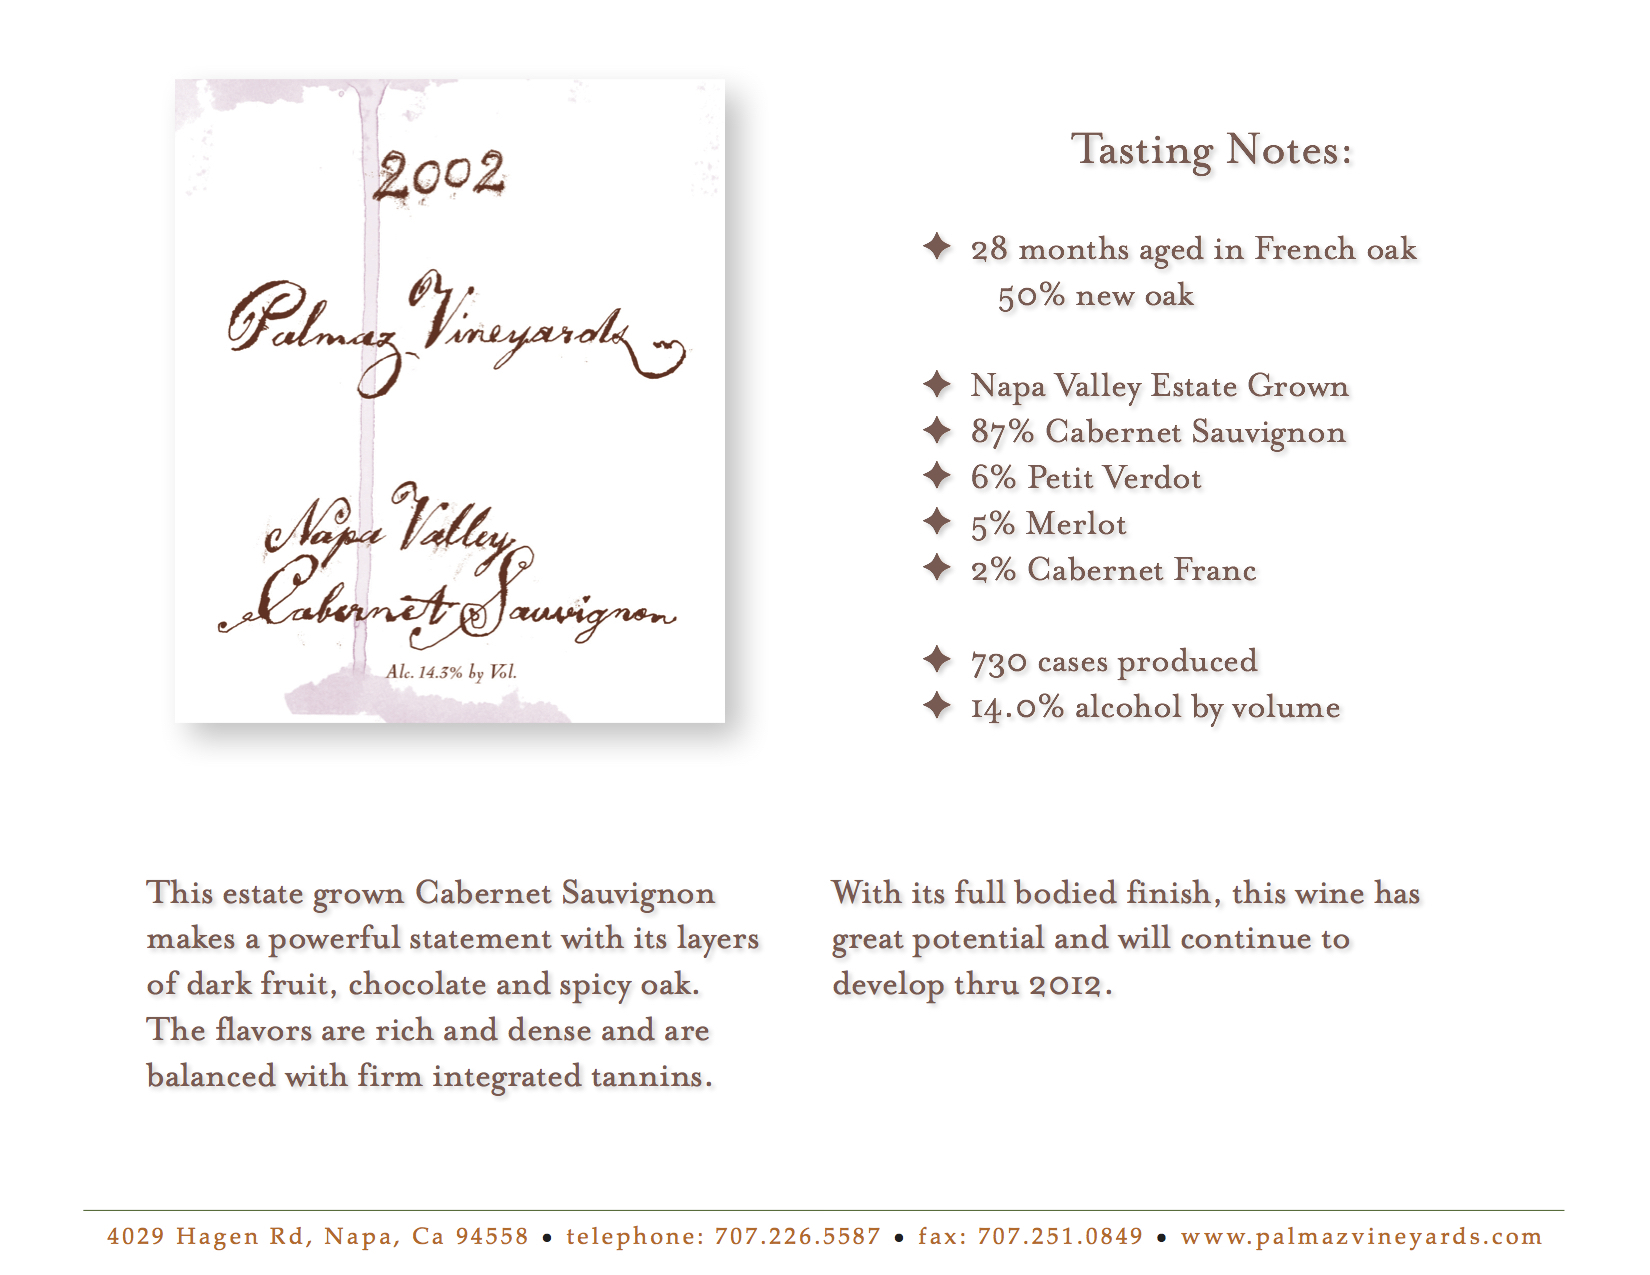 2002
Palmaz Vineyards
Napa Valley
Cabernet Sauvignon
Alc. 14.3% by Vol.
Tasting Notes:
✦ 28 months aged in French oak
50% new oak
✦ Napa Valley Estate Grown
✦ 87% Cabernet Sauvignon
✦ 6% Petit Verdot
✦ 5% Merlot
✦ 2% Cabernet Franc
✦ 730 cases produced
✦ 14.0% alcohol by volume
This estate grown Cabernet Sauvignon
makes a powerful statement with its layers
of dark fruit, chocolate and spicy oak.
The flavors are rich and dense and are
balanced with firm integrated tannins.
With its full bodied finish, this wine has
great potential and will continue to
develop thru 2012.
4029 Hagen Rd, Napa, Ca 94558 • telephone: 707.226.5587 • fax: 707.251.0849 • www.palmazvineyards.com